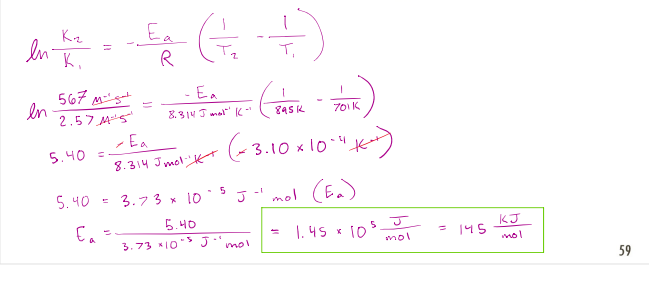 ln K₂/K₁ = -Ea/R (1/T₂ - 1/T₁)
ln 567 M⁻¹s⁻¹/2.57 M⁻¹s⁻¹ = -Ea/8.314 J mol⁻¹ K⁻¹ (1/895K - 1/701K)
5.40 = -Ea/8.314 J mol⁻¹ K⁻¹ (-3.10 × 10⁻⁴ K⁻¹)
5.40 = 3.73 × 10⁻⁵ J⁻¹ mol (Ea)
Ea = 5.40/3.73 × 10⁻⁵ J⁻¹ mol = 1.45 × 10⁵ J/mol = 145 KJ/mol
59